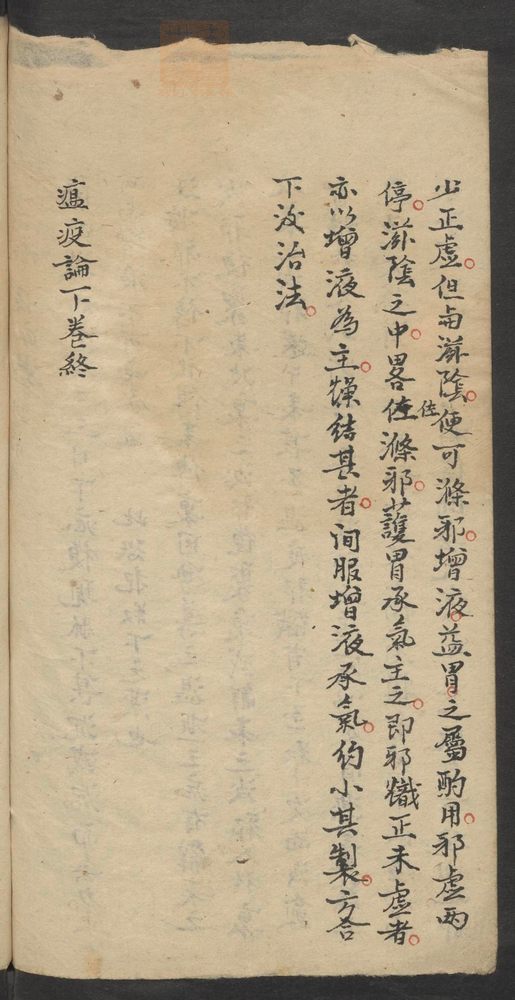 少正虛但與滋陰便可滌邪增液益胃之屬酌用邪虛兩
停滋陰之中畧佐滌邪護胃承氣主之即邪熾正未虛者
亦以增液為主燥結甚者间服增液承氣約小其製方合
下後治法
瘟疫論下卷終